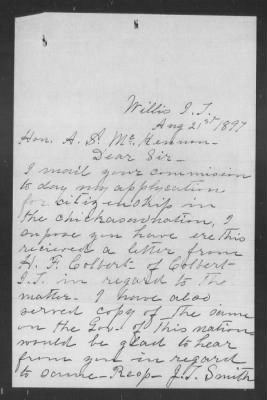 Willis I.T.
Aug 21st 1897
Hon. A. S. McKennon-
Dear Sir-
I mail your commission
to day my application
for citizenship in
the chickasaw nation, I
supose you have ere this
recieved a letter from
H. F. Colbert- of Colbert
I.T. in regard to the
matter- I have also
served copy of the same
on the Gov. of this nation
would be glad to hear
from you in regard
to same- Resp- J.T. Smith